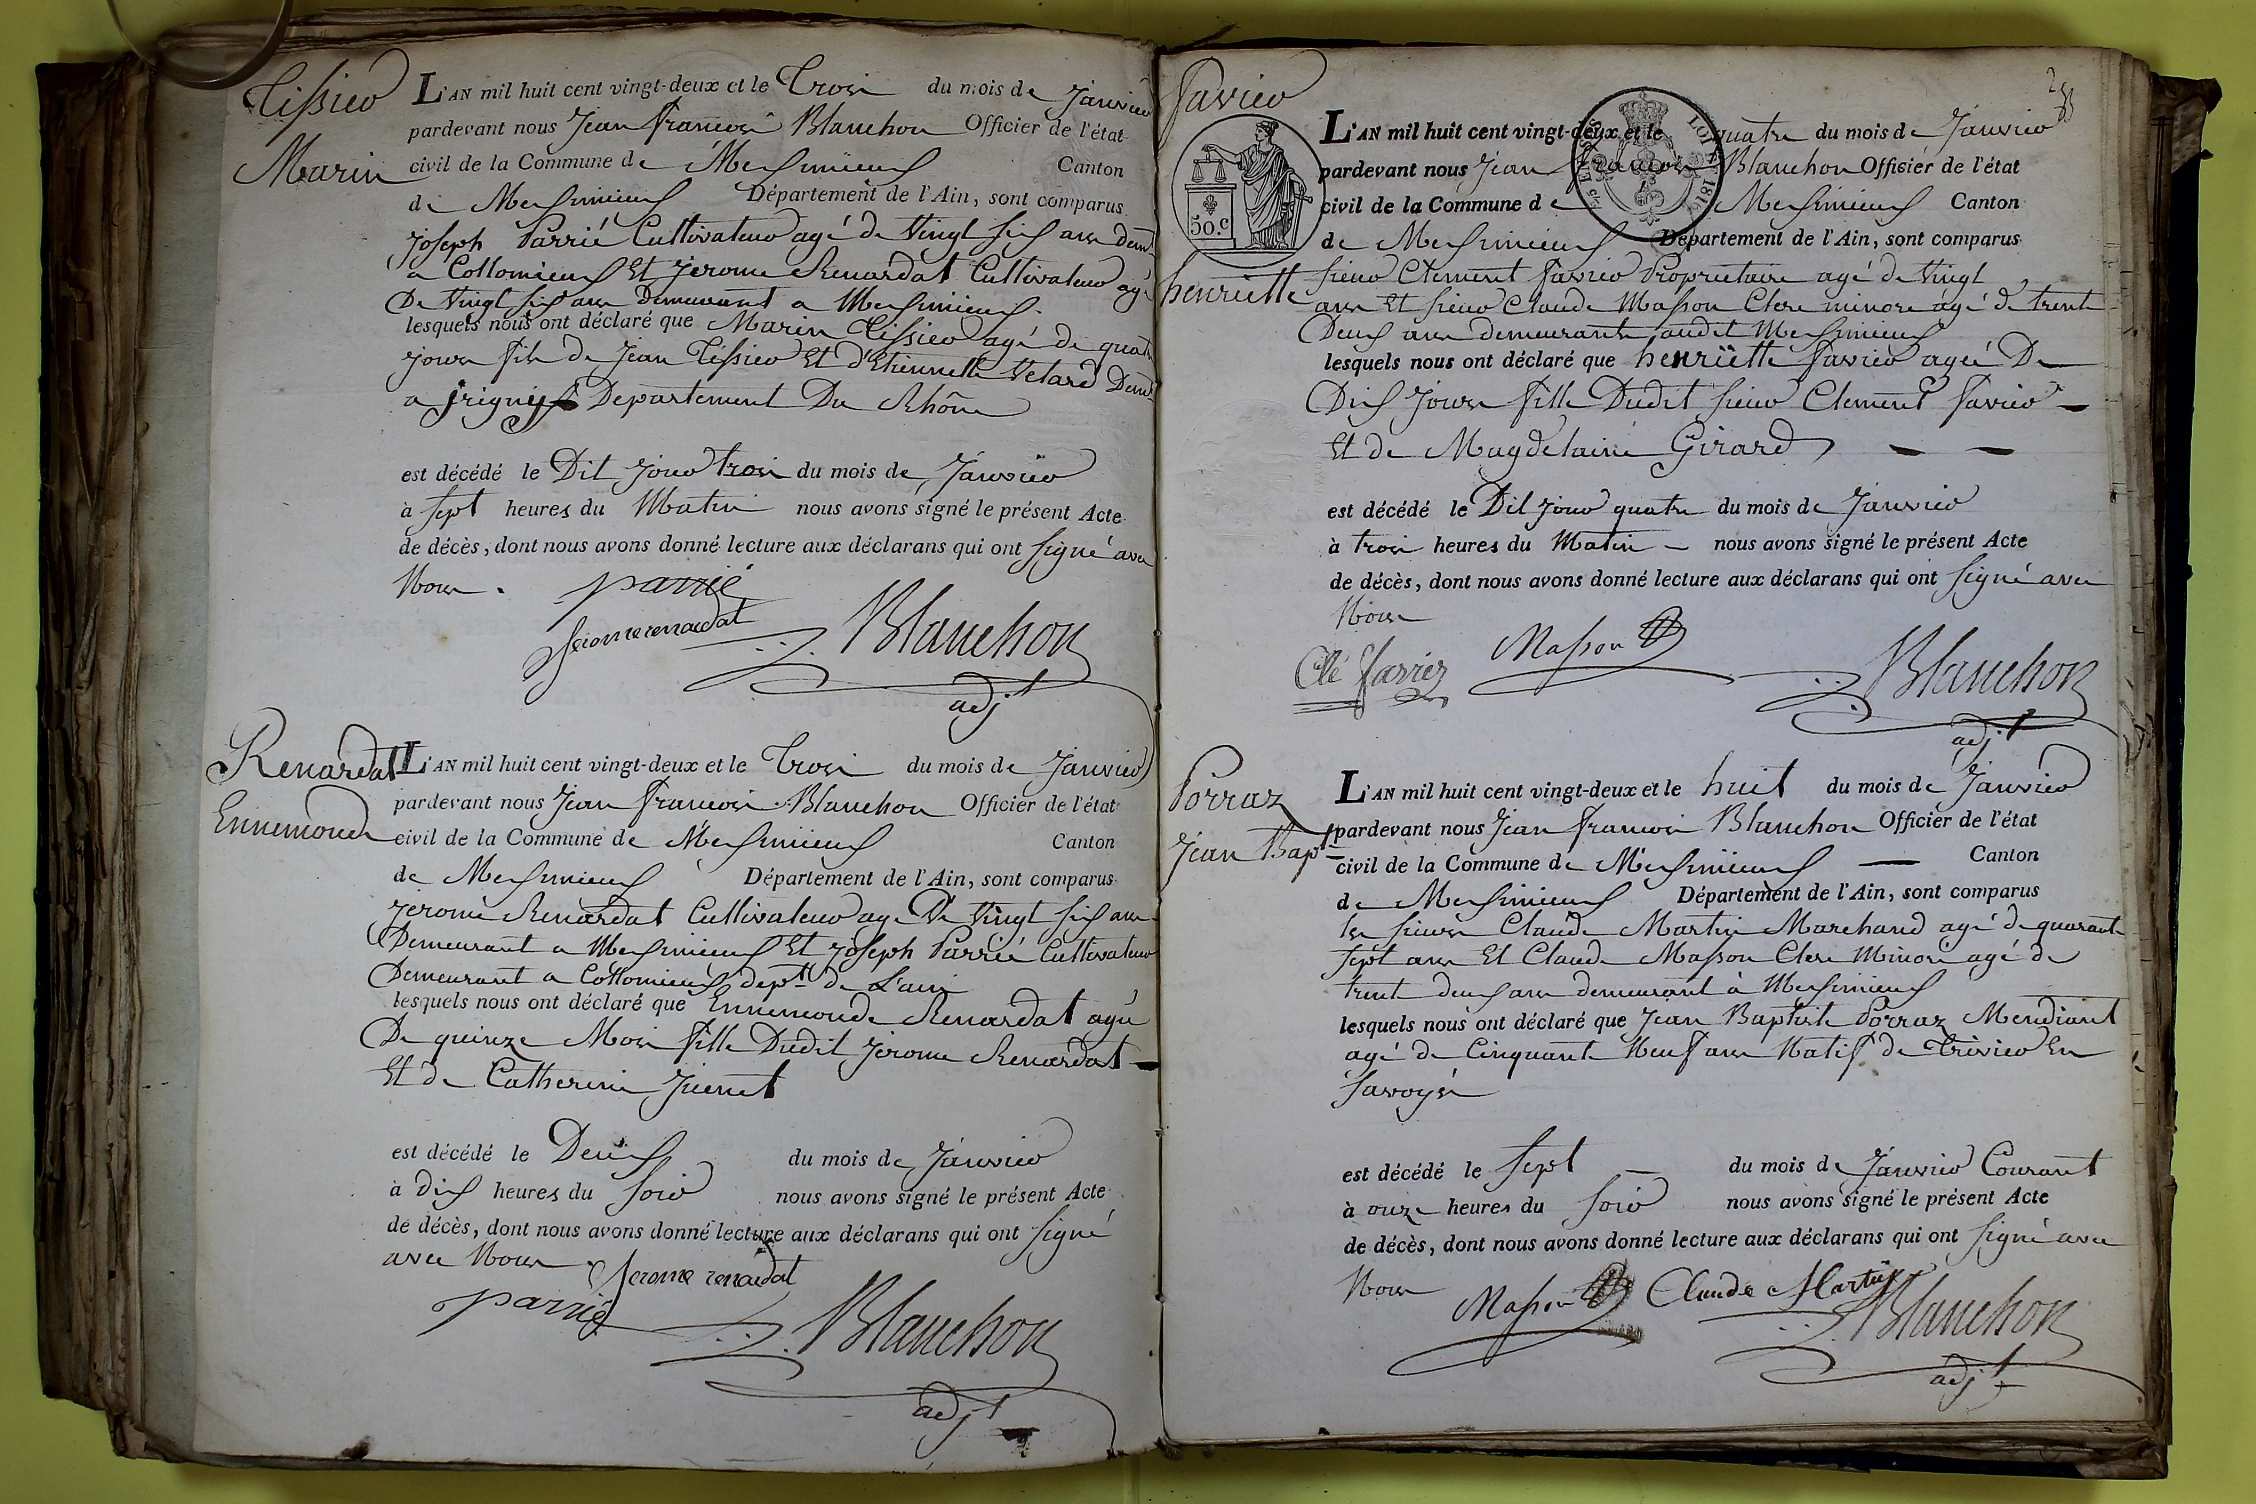 Tissier
Marin
L'AN mil huit cent vingt-deux et le Trois du mois de Janvier
pardevant nous Jean François Blanchon Officier de l'état
civil de la Commune de Meximieux Canton
de Meximieux Département de l'Ain, sont comparus
Joseph Parrié Cultivateur agé de Vingt six ans dem.t
a Collomieux Et Jerome Renardat Cultivateur agé
De Vingt six ans Demeurant a Meximieux.
lesquels nous ont déclaré que Marin Tissier agé de quatre
jours fils de Jean Tissier Et d'Etiennette Velard Dem.t
a jrigny Departement Du Rhône
est décédé le Dit Jour trois du mois de Janvier
à sept heures du Matin nous avons signé le présent Acte
de décès, dont nous avons donné lecture aux déclarans qui ont signé avec
Nous.
parrié
Jerome renardat
Blanchon
adj.t
Renardat
Ennemonde
L'AN mil huit cent vingt-deux et le Trois du mois de Janvier
pardevant nous Jean François Blanchon Officier de l'état
civil de la Commune de Meximieux Canton
de Meximieux Département de l'Ain, sont comparus
Jerome Renardat Cultivateur agé De Vingt six ans
Demeurant a Meximieux Et Joseph Parrié Cultivateur
Demeurant a Collomieux dep.t de L'ain
lesquels nous ont déclaré que Ennemonde Renardat agée
De quinze Mois fille Dudit Jerome Renardat
Et de Catherine Juenet
est décédé le Deux du mois de Janvier
à Dix heures du soir nous avons signé le présent Acte
de décès, dont nous avons donné lecture aux déclarans qui ont signé
avec Nous.
Jerome renardat
parrié
Blanchon
adj.t
28
Favier
50.C
LOI 1816
henriette
L'AN mil huit cent vingt-deux et le quatre du mois de Janvier
pardevant nous Jean François Blanchon Officier de l'état
civil de la Commune de Meximieux Canton
de Meximieux Département de l'Ain, sont comparus
sieur Clement Favier Proprietaire agé de Vingt
ans Et sieur Claude Masson Clerc minoré agé de trente
Deux ans demeurants audit Meximieux
lesquels nous ont déclaré que henriëtte Favier ageé De
Dix Jours fille Dudit sieur Clement Favier
Et de Magdelaine Girard
est décédé le Dit Jour quatre du mois de Janvier
à trois heures du Matin nous avons signé le présent Acte
de décès, dont nous avons donné lecture aux déclarans qui ont signé avec
Nous
Clé favier
Masson
Blanchon
adj.t
Porraz
Jean Bap.te
L'AN mil huit cent vingt-deux et le huit du mois de Janvier
pardevant nous Jean François Blanchon Officier de l'état
civil de la Commune de Meximieux Canton
de Meximieux Département de l'Ain, sont comparus
les sieurs Claude Martin Marchand agé de quarante
sept ans Et Claude Masson Clerc Minoré agé de
trente deux ans demeurant à Meximieux
lesquels nous ont déclaré que Jean Baptiste Porraz Mendiant
agé de Cinquante Neuf ans Natif de Trivier En
Savoye
est décédé le sept du mois de Janvier Courant
à onze heures du soir nous avons signé le présent Acte
de décès, dont nous avons donné lecture aux déclarans qui ont signé avec
Nous
Masson
Claude Martin
Blanchon
adj.t